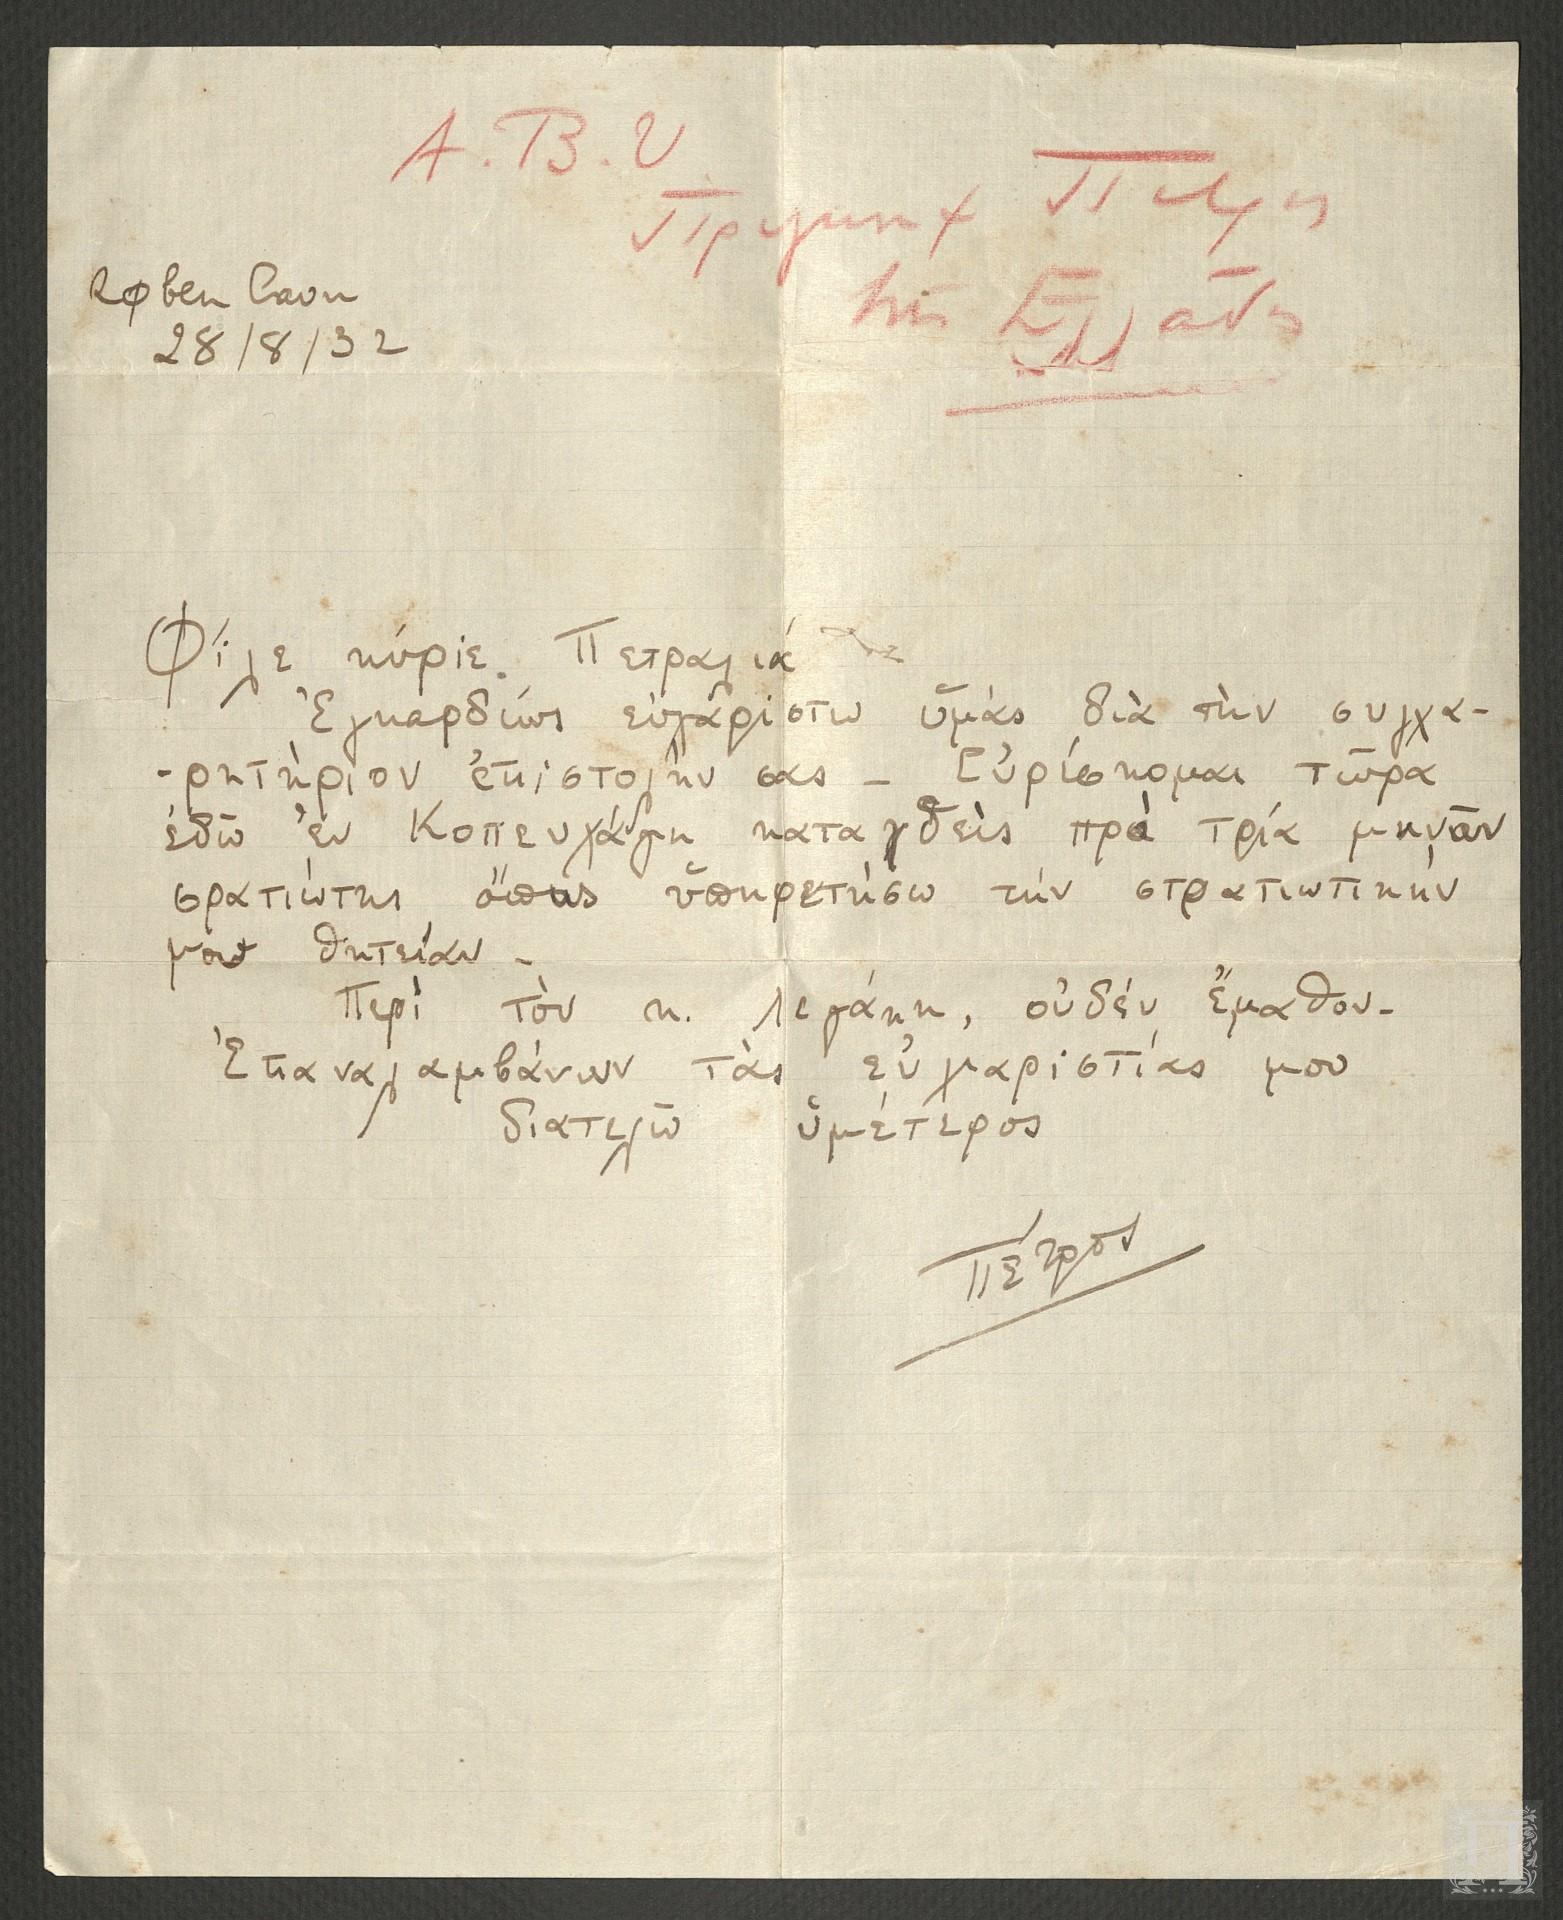 Α.Β.Υ
Πρίγκηψ Πέτρος
τῆς Ἑλλάδος
København
28/8/32
Φίλε κύριε. Πετραλιά
Ἐγκαρδίως εὐχαριστω ὑμάς διὰ τὴν συγχα-
-ρητήριον ἐπιστολὴν σας - Εὑρίσκομαι τῶρα
ἐδῶ ἐν Κοπενχάγη καταχθεὶς πρὸ τρία μηνῶν
σρατιώτης ὅπως ὑπηρετήσω τὴν στρατιωτικήν
μου θητείαν -
Περὶ τὸν κ. Λεγάκη, οὐδέν ἔμαθον -
Ἐπαναλαμβάνων τὰς εὐχαριστίας μου
διατελῶ ὑμέτερος
Πέτρος